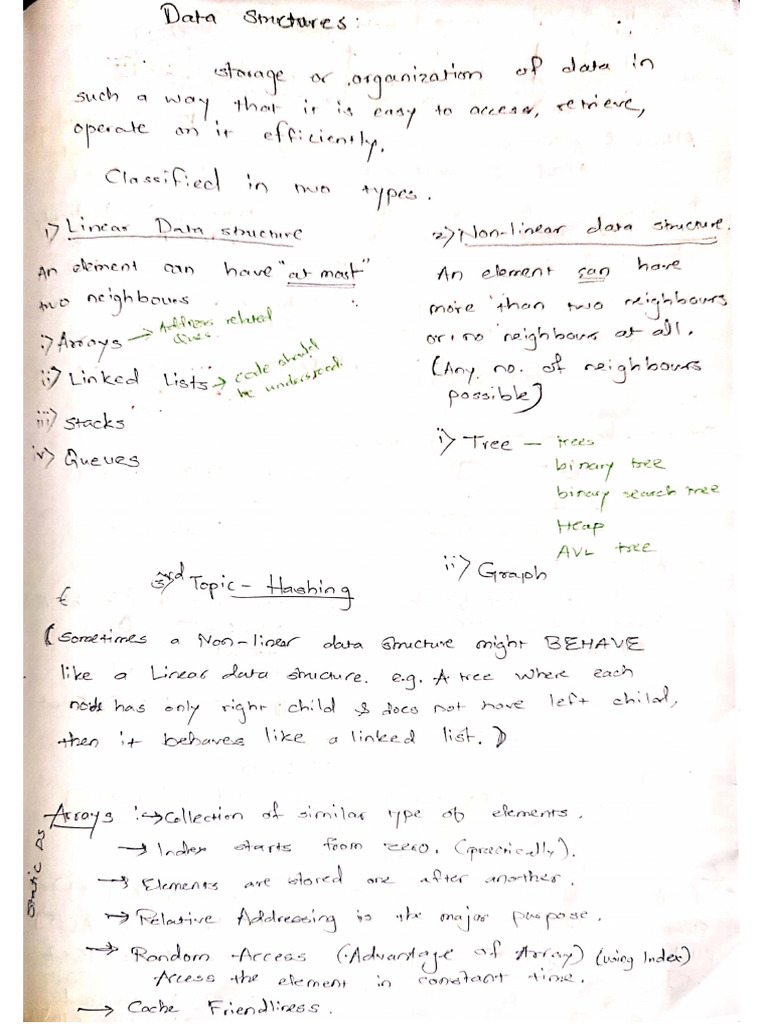 Data Structures:
storage or organization of data in
such a way that it is easy to access, retrieve,
operate on it efficiently.
Classified in two types.
1) Linear Data structure
An element can have "at most"
two neighbours
i) Arrays → Address related
ques.
ii) Linked Lists → code should
be understood.
iii) Stacks
iv) Queues
2) Non-linear data structure.
An element can have
more than two neighbours
or no neighbour at all.
(Any no. of neighbours
possible)
i) Tree - trees
binary tree
binary search tree
Heap
AVL tree
ii) Graph
3rd Topic - Hashing
(Sometimes a Non-linear data structure might BEHAVE
like a Linear data structure. e.g. A tree where each
node has only right child & does not have left child,
then it behaves like a linked list.)
Static DS
Arrays :→ Collection of similar type of elements.
→ Index starts from zero. (practically).
→ Elements are stored one after another.
→ Relative Addressing is the major purpose.
→ Random Access (Advantage of Array) (using Index)
Access the element in constant time.
→ Cache Friendliness.